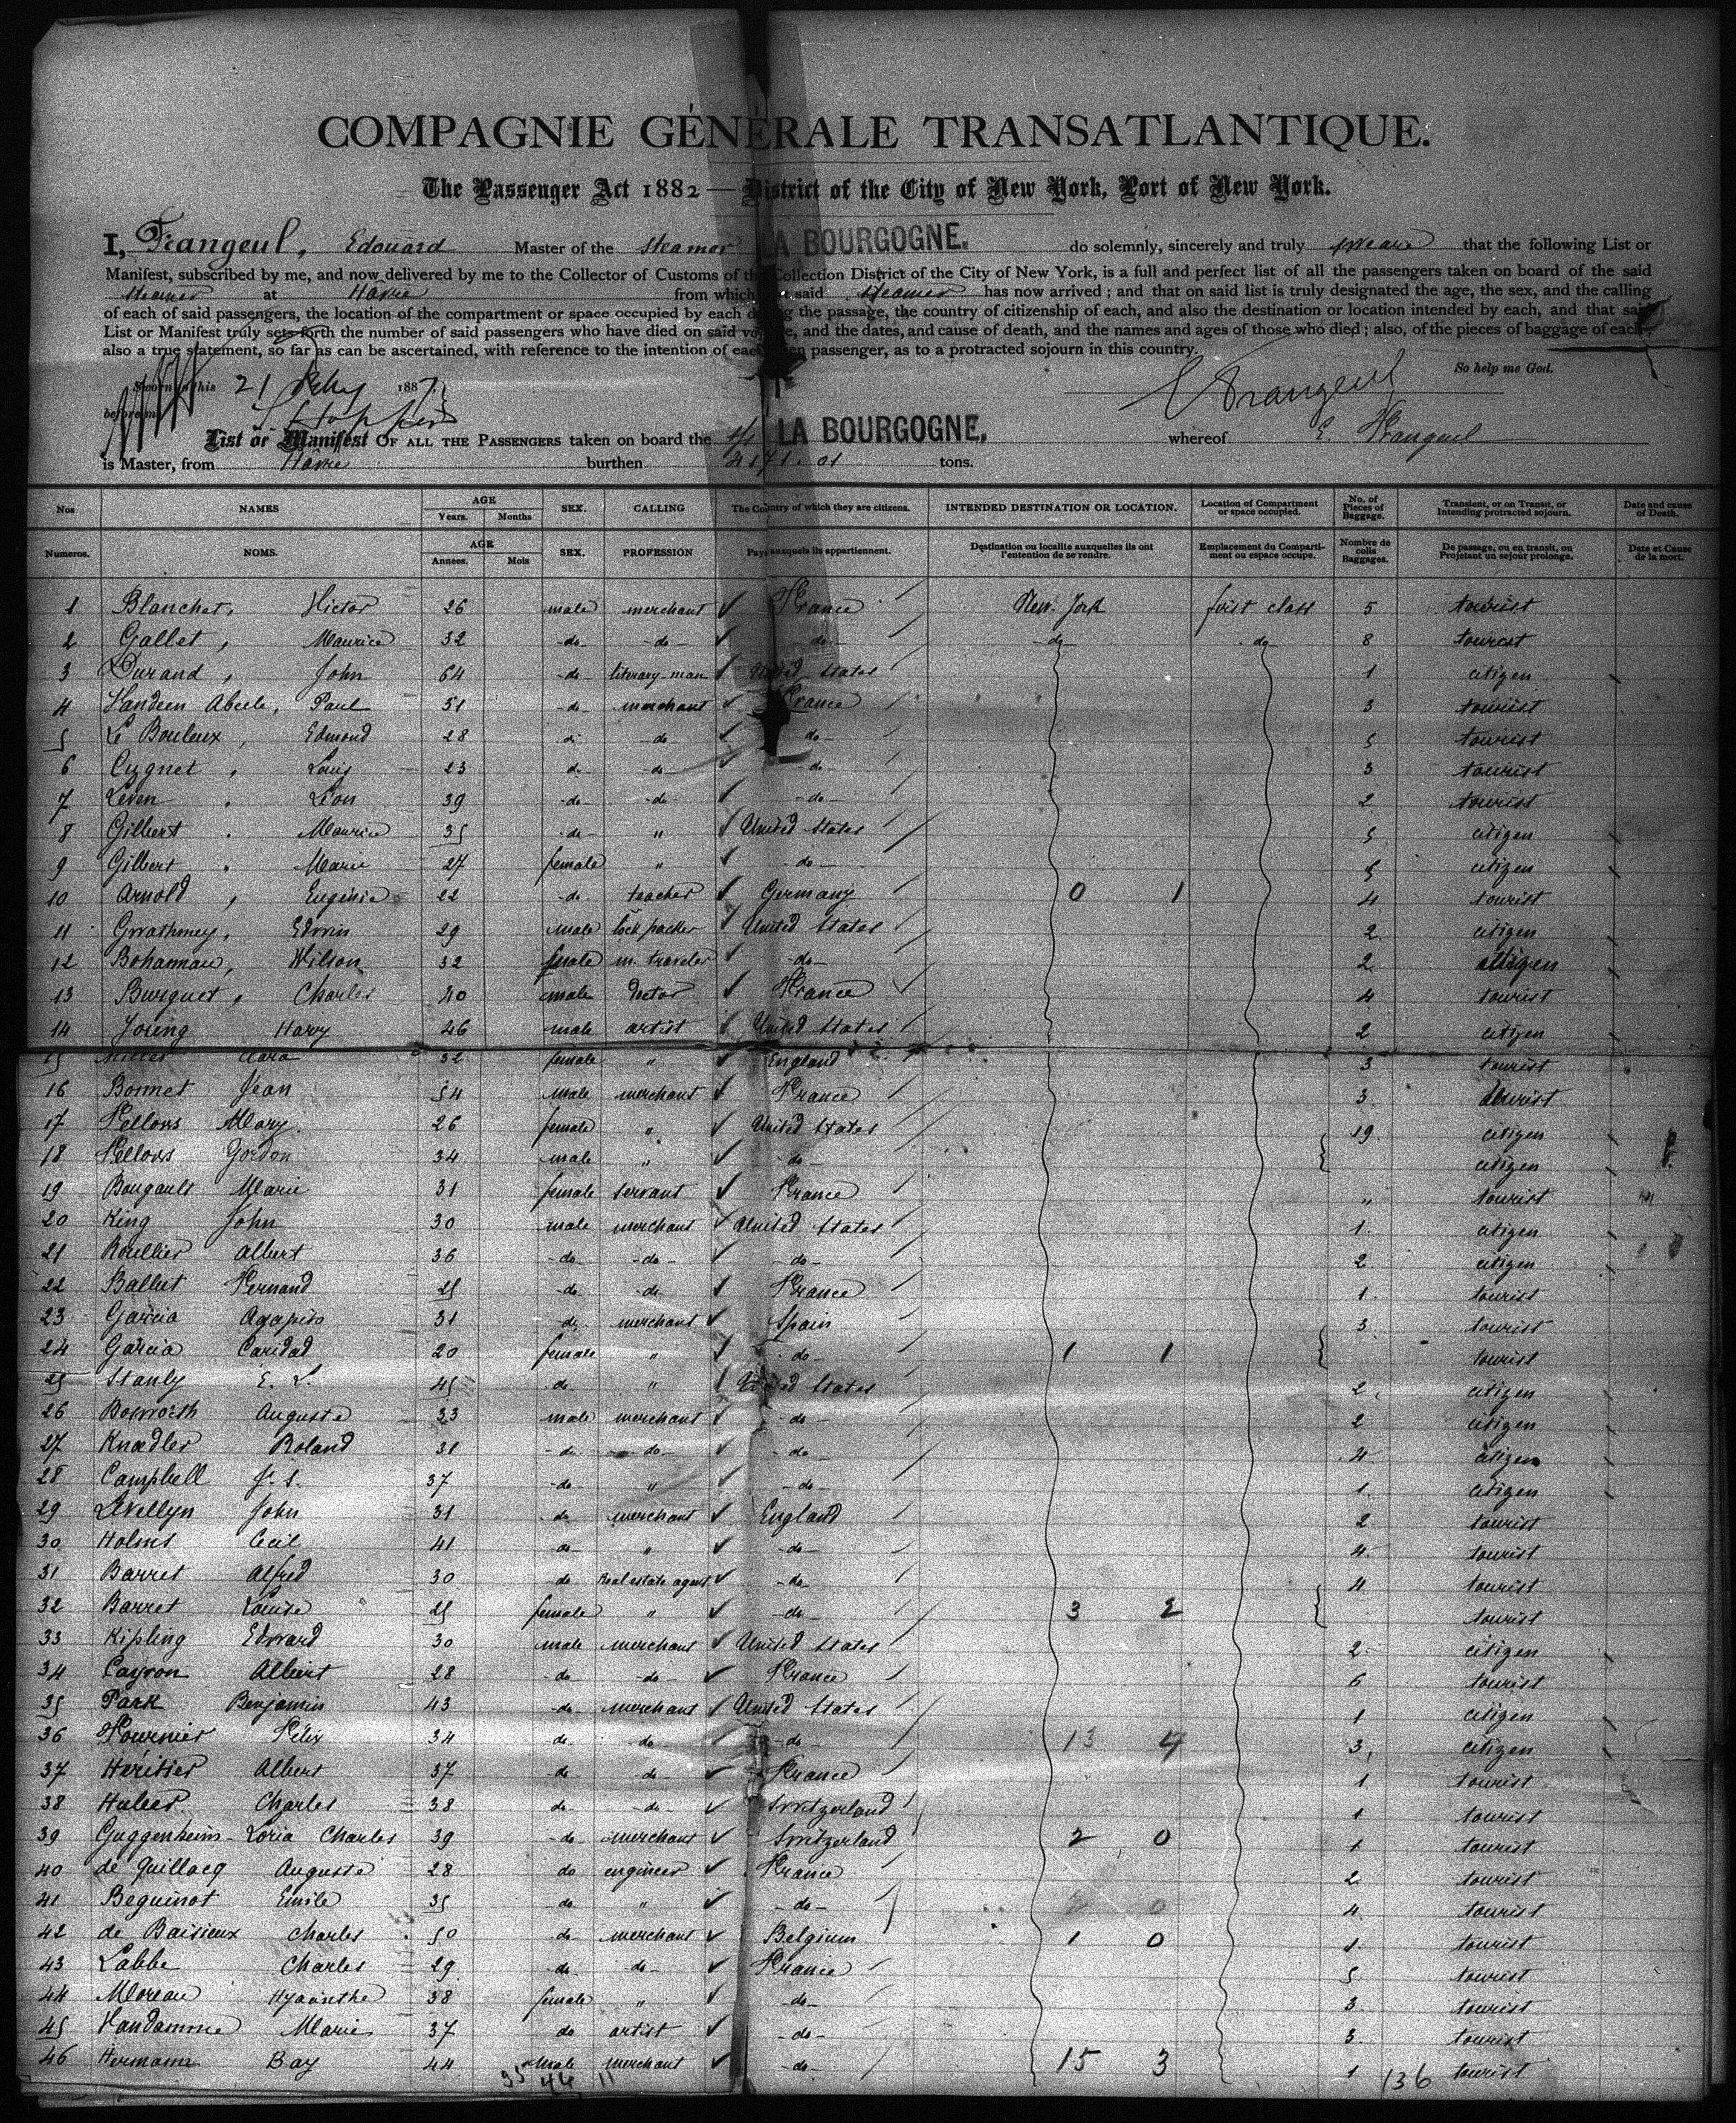 COMPAGNIE GÉNÉRALE TRANSATLANTIQUE.
The Passenger Act 1882 — District of the City of New York, Port of New York.
I, Frangeul, Edouard Master of the steamer LA BOURGOGNE. do solemnly, sincerely and truly swear that the following List or
Manifest, subscribed by me, and now delivered by me to the Collector of Customs of the Collection District of the City of New York, is a full and perfect list of all the passengers taken on board of the said
steamer at Havre from which said steamer has now arrived; and that on said list is truly designated the age, the sex, and the calling
of each of said passengers, the location of the compartment or space occupied by each during the passage, the country of citizenship of each, and also the destination or location intended by each, and that said
List or Manifest truly sets forth the number of said passengers who have died on said voyage, and the dates, and cause of death, and the names and ages of those who died; also, of the pieces of baggage of each,
also a true statement, so far as can be ascertained, with reference to the intention of each passenger, as to a protracted sojourn in this country.
So help me God.
Sworn to this 21 Feby 1887
E Frangeul
before me
List or Manifest OF ALL THE PASSENGERS taken on board the S/S LA BOURGOGNE. whereof E. Frangeul
is Master, from Havre burthen 4171.01 tons.
Nos NAMES AGE Years. Months SEX. CALLING The Country of which they are citizens. INTENDED DESTINATION OR LOCATION. Location of Compartment or space occupied. No. of Pieces of Baggage. Transient, or on Transit, or Intending protracted sojourn. Date and cause of Death.
Numeros. NOMS. AGE Annees. Mois SEX. PROFESSION Pays auxquels ils appartiennent. Destination ou localite auxquelles ils ont l'entention de se rendre. Emplacement du Comparti-ment ou espace occupe. Nombre de colis Baggages. De passage, ou en transit, ou Projetant un sejour prolonge. Date et Cause de la mort.
1 Blanchet, Victor 26 male merchant France New York first class 5 tourist
2 Gallet, Maurice 32 do do do do do 8 tourist
3 Durand, John 64 do literary-man United States 1 citizen
4 Vandeen Abeele, Paul 51 do merchant France 3 tourist
5 Le Bouleux, Edmond 28 do do do 5 tourist
6 Cugnet, Louis 23 do do do 3 tourist
7 Leven, Léon 39 do do do 2 tourist
8 Gilbert, Maurice 35 do " United States 5 citizen
9 Gilbert, Marie 27 female " do 5 citizen
10 Arnold, Eugénie 22 do teacher Germany 0 1 4 tourist
11 Gwathmey, Edwin 29 male United States 2 citizen
12 Bohannan, Wilson 32 do 2 citizen
13 Burguet, Charles 40 male doctor France 4 tourist
14 Young Harry 46 male artist United States 2 citizen
15 Miller Clara 32 female " England 3 tourist
16 Bonnet Jean 54 male merchant France 3 tourist
17 Fellows Mary 26 female " United States 19 citizen
18 Fellows Gordon 34 male " do citizen
19 Bougault Marie 31 female servant France " tourist
20 King John 30 male merchant United States 1 citizen
21 Roullier Albert 36 do do do 2 citizen
22 Ballet Fernand 25 do do France 1 tourist
23 Garcia Agapito 31 do merchant Spain 3 tourist
24 Garcia Caridad 20 female " do 1 1 tourist
25 Stanly E. L. 45 do " United States 2 citizen
26 Bosworth Auguste 33 male merchant do 2 citizen
27 Knædler Roland 31 do do do 4 citizen
28 Campbell J. S. 37 do " do 1 citizen
29 Levellyn John 31 do merchant England 2 tourist
30 Holms Cecil 41 do " do 4 tourist
31 Barret Alfred 30 do Real estate agent do 4 tourist
32 Barret Louise 25 female " do 3 2 tourist
33 Kipling Edward 30 male merchant United States 2 citizen
34 Cayron Albert 28 do do France 6 tourist
35 Park Benjamin 43 do merchant United States 1 citizen
36 Fournier Félix 34 do do do 13 4 3 citizen
37 Héritier Albert 37 do do France 1 tourist
38 Huber Charles 38 do do Switzerland 1 tourist
39 Guggenheim-Loria Charles 39 do merchant Switzerland 2 0 1 tourist
40 de Quillacq Auguste 28 do engineer France 2 tourist
41 Beguinot Emile 35 do " do 4 tourist
42 de Baisieux Charles 50 do merchant Belgium 1 0 1 tourist
43 Labbe Charles 29 do do France 5 tourist
44 Moreau Hyacinthe 38 female " do 3 tourist
45 Vandamme Marie 37 do artist do 3 tourist
46 Hermann Bay 44 male merchant do 15 3 1 tourist
35 46 11 136